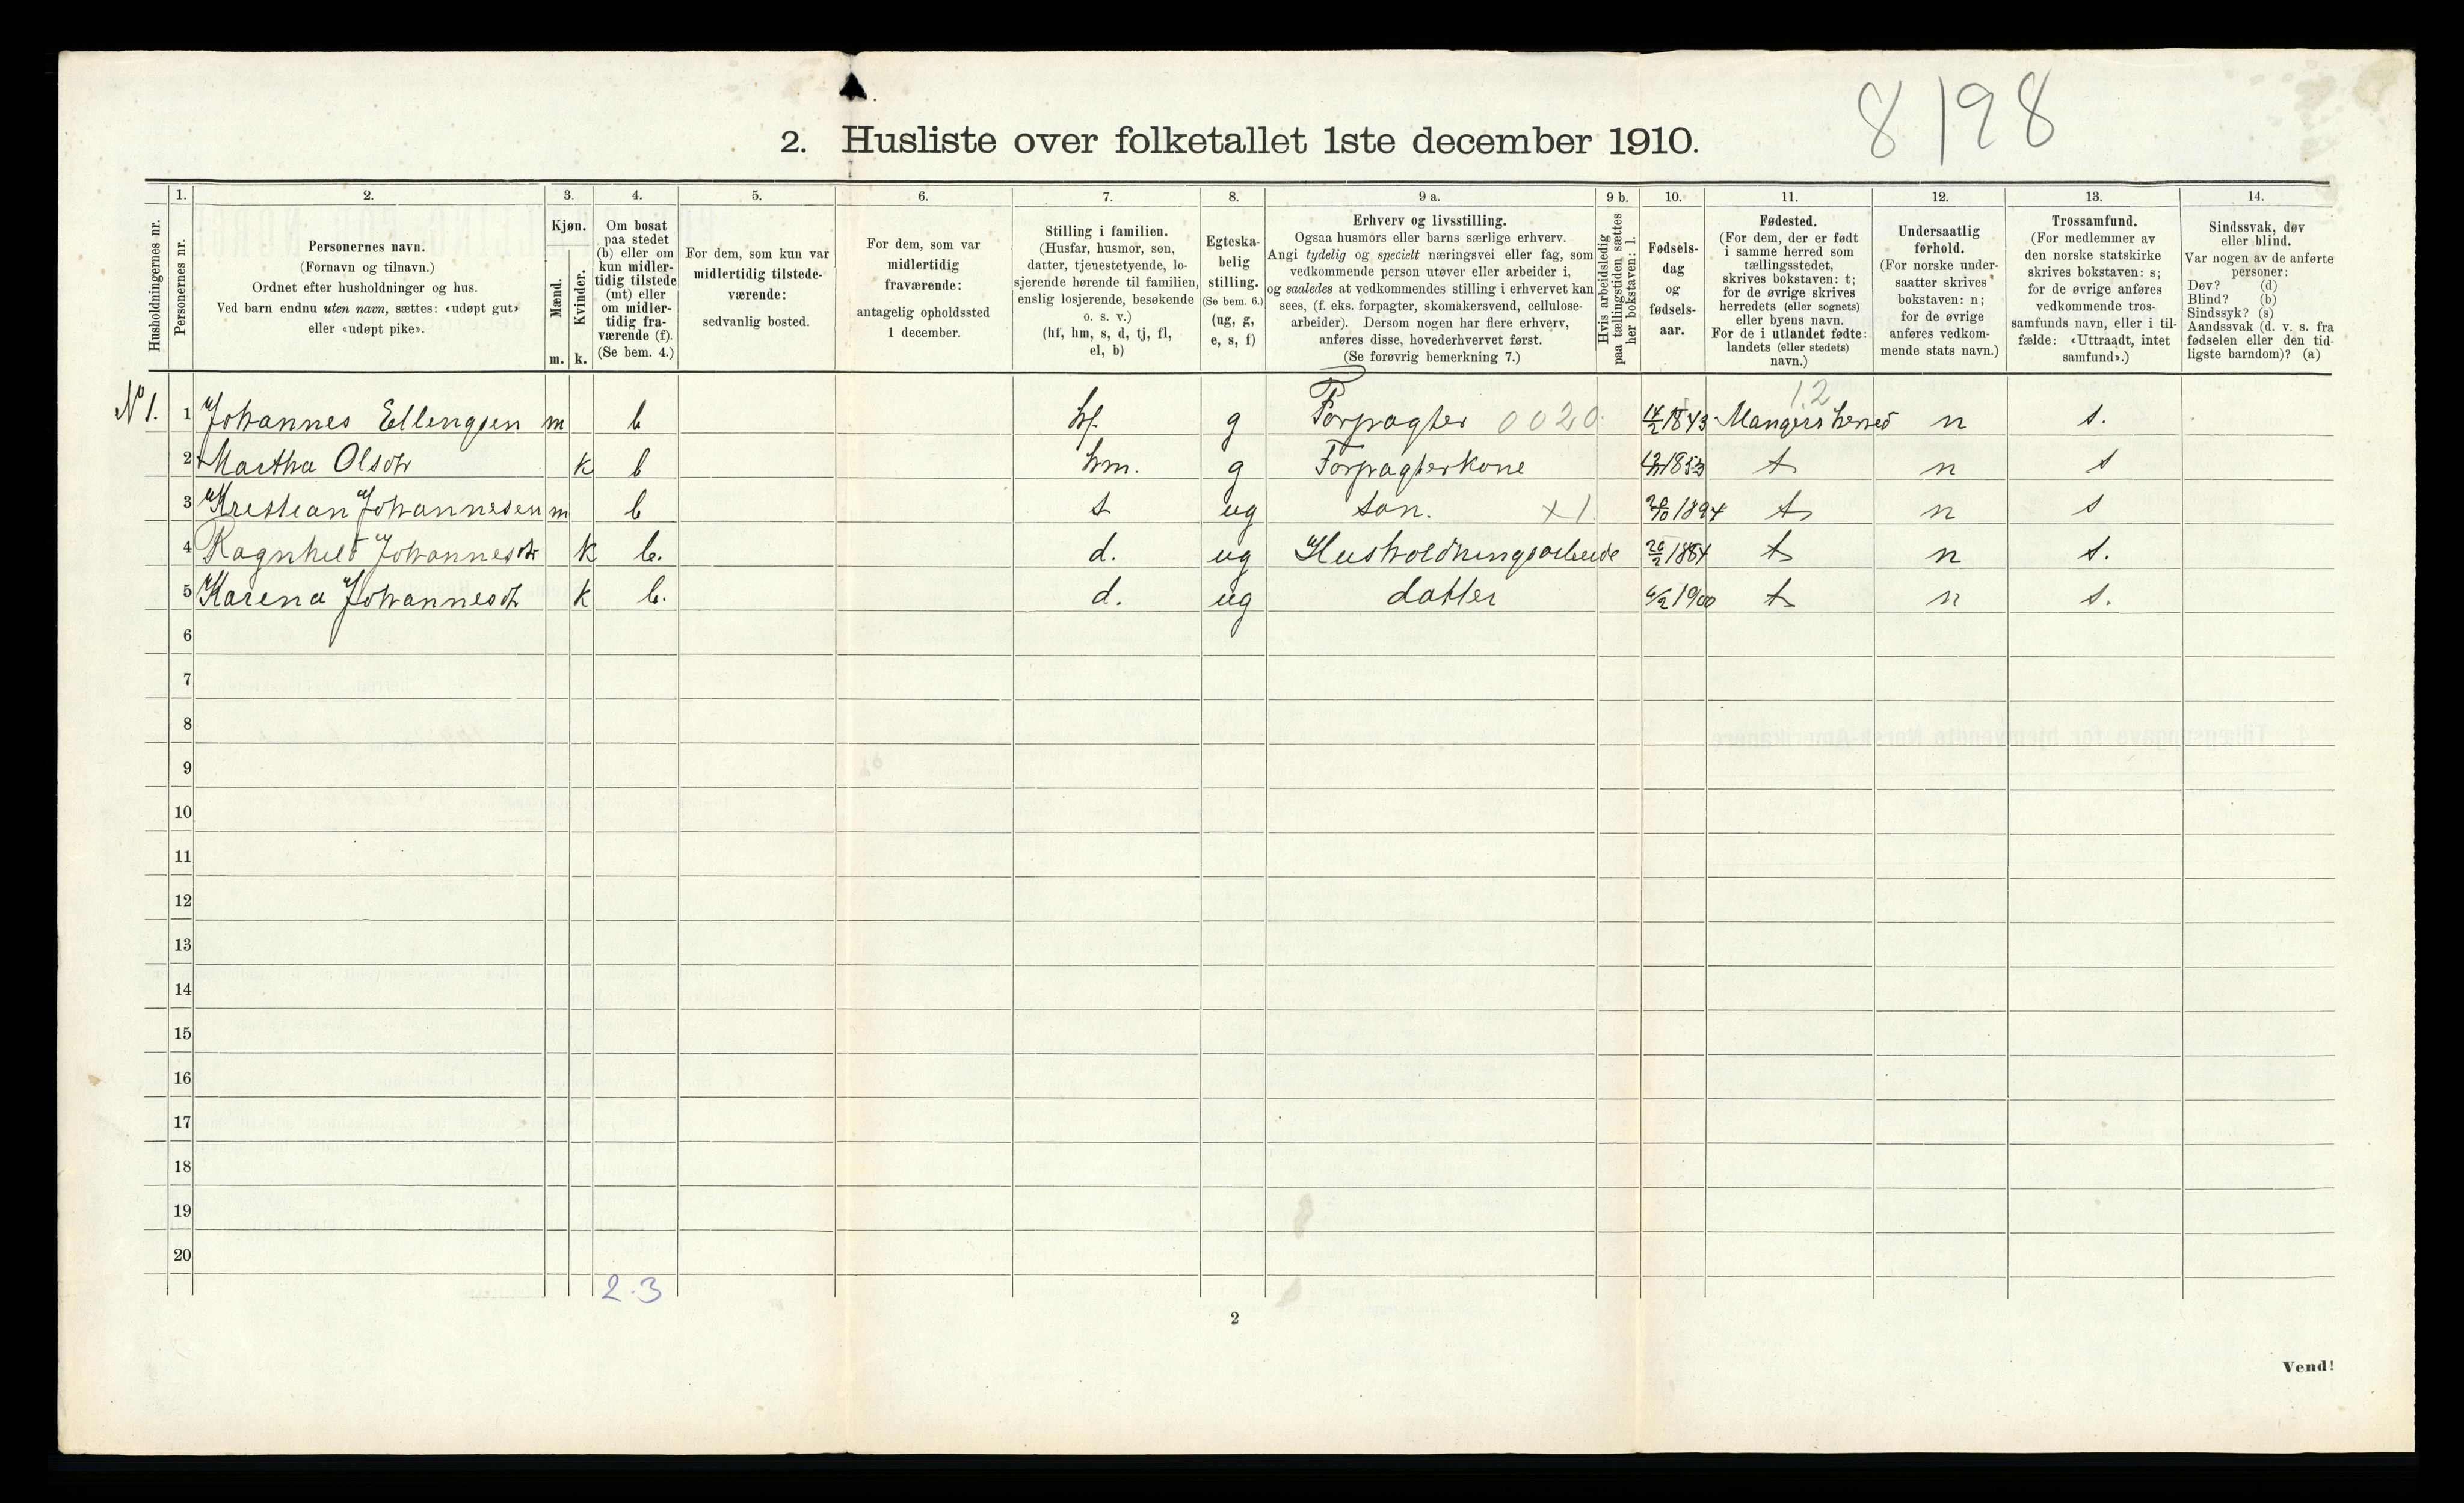 8198
2. Husliste over folketallet 1ste december 1910.
Husholdningernes nr.
1. Personernes nr.
2. Personernes navn.
(Fornavn og tilnavn.)
Ordnet efter husholdninger og hus.
Ved barn endnu uten navn, sættes: «udøpt gut»
eller «udøpt pike».
3. Kjøn.
Mænd. m.
Kvinder. k.
4. Om bosat
paa stedet
(b) eller om
kun midler-
tidig tilstede
(mt) eller
om midler-
tidig fra-
værende (f).
(Se bem. 4.)
5. For dem, som kun var
midlertidig tilstede-
værende:
sedvanlig bosted.
6. For dem, som var
midlertidig
fraværende:
antagelig opholdssted
1 december.
7. Stilling i familien.
(Husfar, husmor, søn,
datter, tjenestetyende, lo-
sjerende hørende til familien,
enslig losjerende, besøkende
o. s. v.)
(hf, hm, s, d, tj, fl,
el, b)
8. Egteska-
belig
stilling.
(Se bem. 6.)
(ug, g,
e, s, f)
9 a. Erhverv og livsstilling.
Ogsaa husmors eller barns særlige erhverv.
Angi tydelig og specielt næringsvei eller fag, som
vedkommende person utøver eller arbeider i,
og saaledes at vedkommendes stilling i erhvervet kan
sees, (f. eks. forpagter, skomakersvend, cellulose-
arbeider). Dersom nogen har flere erhverv,
anføres disse, hovederhvervet først.
(Se forøvrig bemerkning 7.)
9 b. Hvis arbeidsledig
paa tællingstiden sættes
her bokstaven: l.
10. Fødsels-
dag
og
fødsels-
aar.
11. Fødested.
(For dem, der er født
i samme herred som
tællingsstedet,
skrives bokstaven: t;
for de øvrige skrives
herredets (eller sognets)
eller byens navn.
For de i utlandet fødte:
landets (eller stedets)
navn.)
12. Undersaatlig
forhold.
(For norske under-
saatter skrives
bokstaven: n;
for de øvrige
anføres vedkom-
mende stats navn.)
13. Trossamfund.
(For medlemmer av
den norske statskirke
skrives bokstaven: s;
for de øvrige anføres
vedkommende tros-
samfunds navn, eller i til-
fælde: «Uttraadt, intet
samfund».)
14. Sindssvak, døv
eller blind.
Var nogen av de anførte
personer:
Døv? (d)
Blind? (b)
Sindssyk? (s)
Aandssvak (d. v. s. fra
fødselen eller den tid-
ligste barndom)? (a)
12
No 1. 1 Johannes Ellengsen m b hf. g Forpagter 0020 14/2 1843 Mangers herred n s.
2 Martha Olsdtr k b hm. g Forpagterkone 1853 t n s
3 Krestian Johannesen m b s ug søn. x1 1894 t n s
4 Ragnhild Johannesdtr k b. d. ug Husholdningsarbeide 20/2 1884 t n s.
5 Karena Johannesdt k b. d. ug datter 6/2 1900 t n s.
6
7
8
9
10
11
12
13
14
15
16
17
18
19
20
2.3
2
Vend!